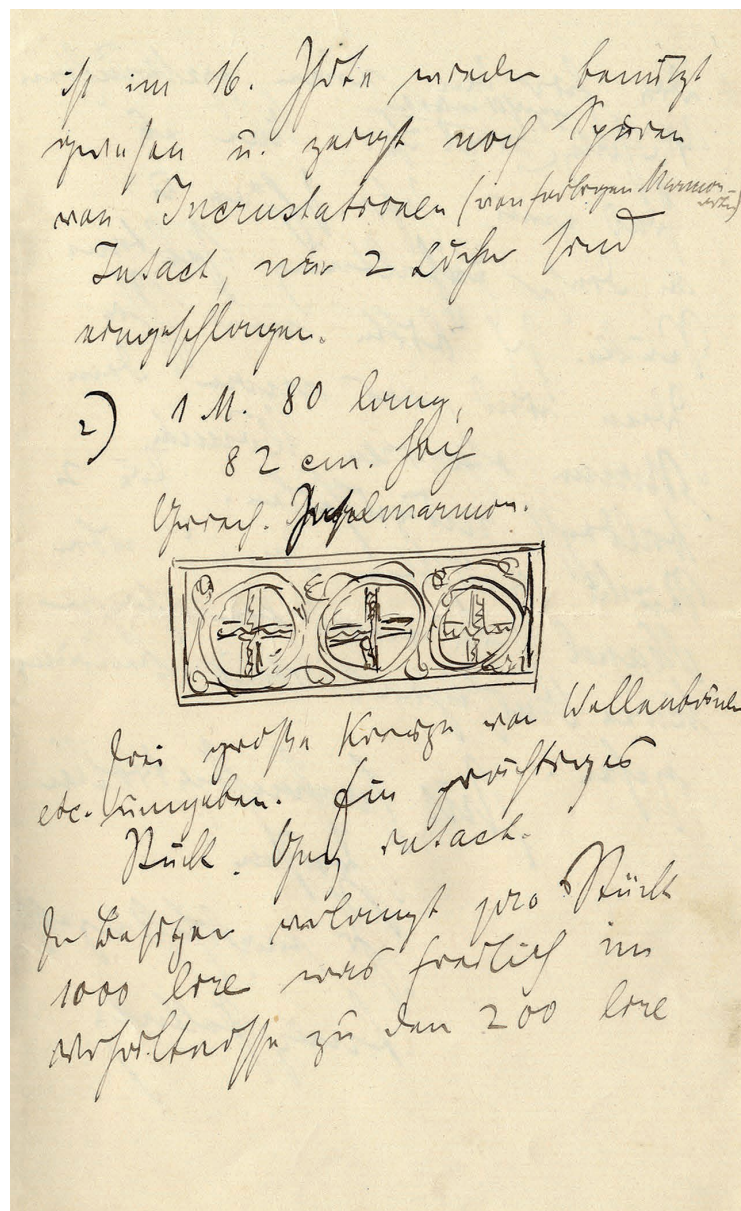 ist im 16. Jhdte wieder benützt
gewesen u. zeigt noch Spuren
von Incrustationen (von farbigem Marmor
Intact, nur 2 Löcher sind
eingeschlagen.
2) 1 M. 80 lang,
82 cm. hoch
Griech. Inselmarmor.
Drei große Kreuze von Wellenbändern
etc. umgeben. Ein prächtiges
Stück. Ganz intact.
Der Besitzer verlangt pro Stück
1000 lire was freilich im
Verhältnisse zu den 200 lire